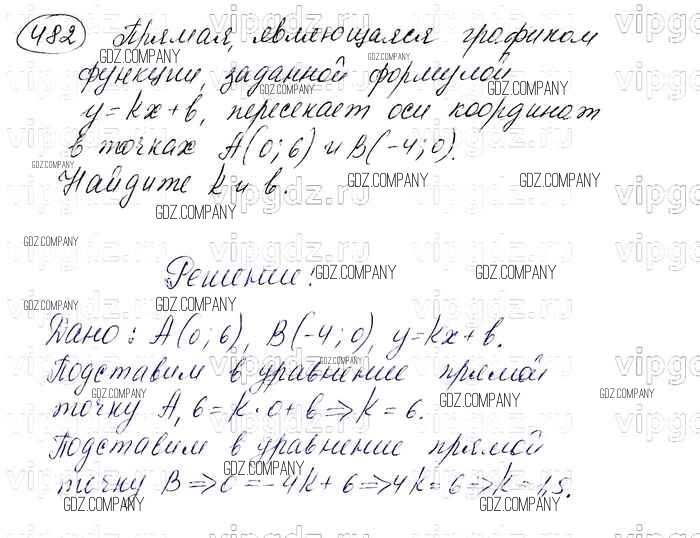 482 Прямая, являющаяся графиком
функции, заданной формулой
y=kx+b, пересекает оси координат
в точках A(0;6) и B(-4;0).
Найдите k и b.
Решение:
Дано: A(0;6), B(-4;0), y=kx+b.
Подставим в уравнение прямой
точку A, 6=k·0+b⇒k=6.
Подставим в уравнение прямой
точку B⇒0=-4k+6⇒4k=6⇒k=1,5.
GDZ.COMPANY
vipgdz.ru